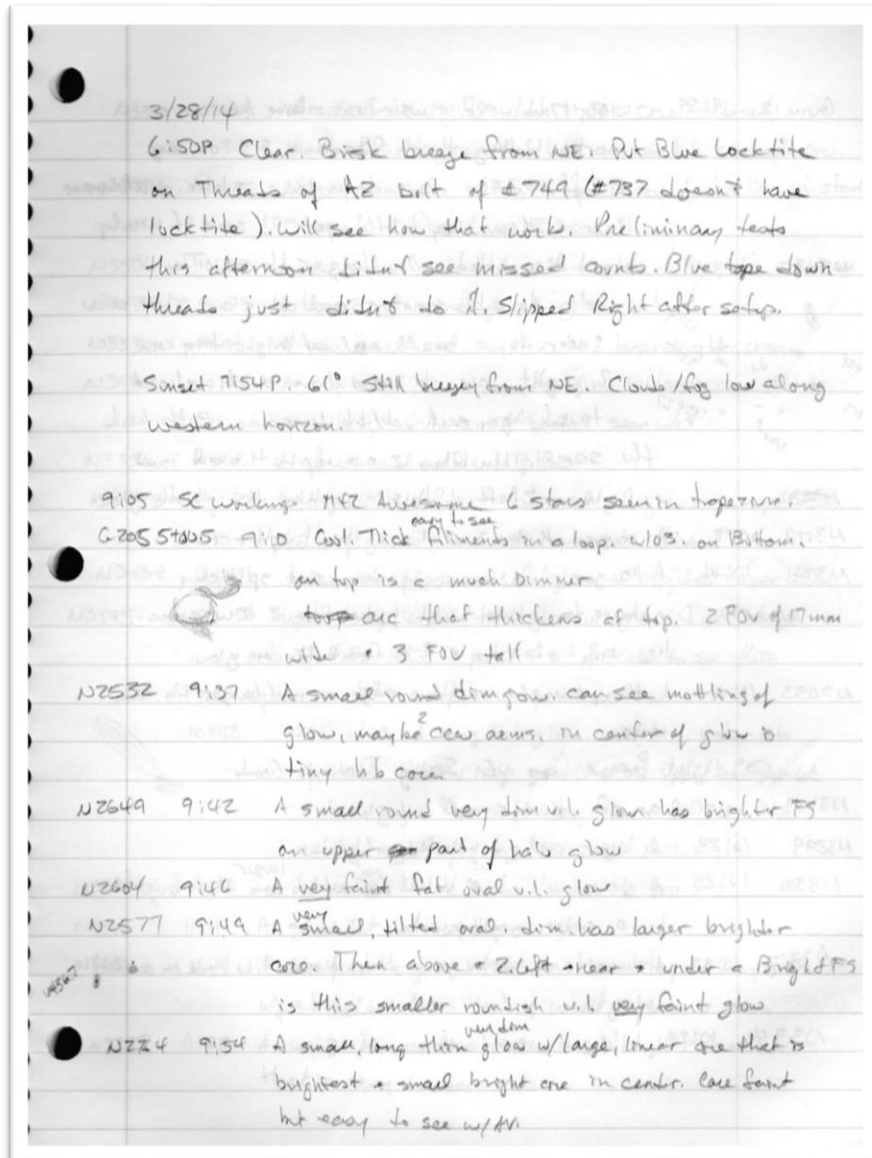 3/28/14
6:50P Clear. Brisk breeze from NE. Put Blue Locktite
on Threads of AZ bolt of #749 (#737 doesn't have
locktite). Will see how that work. Preliminary tests
this afternoon didn't see missed counts. Blue tape down
threads just didn't do it. Slipped Right after setup.
Sunset 7:54P. 61° Still breezy from NE. Clouds/fog low along
western horizon.
9:05 SC working. M42 Awesome 6 stars seen in trapezium.
G205.5+00.5 9:10 Cool. Thick easy to see filiments in a loop. w/O3. on Bottom,
on top is a much Dimmer
arc that thickens at top. 2 FOV of 17mm
wide + 3 FOV tall
N2532 9:37 A small round dim glow. can see mottling of
glow, maybe 2 ccw arms. in center of glow is
tiny lil b core.
N2649 9:42 A small round very dim v.l. glow has brighter FS
on upper part of halo glow
N2604 9:46 A very faint fat oval v.l. glow
N2577 9:49 A very small, tilted oval, dim has larger brighter
core. Then above + 2.left + near + under a Bright FS
is this smaller roundish v.l. very faint glow
9:54 A small, long thin very dim glow w/large, linear core that is
brightest + small bright core in center. Core faint
but easy to see w/AV.